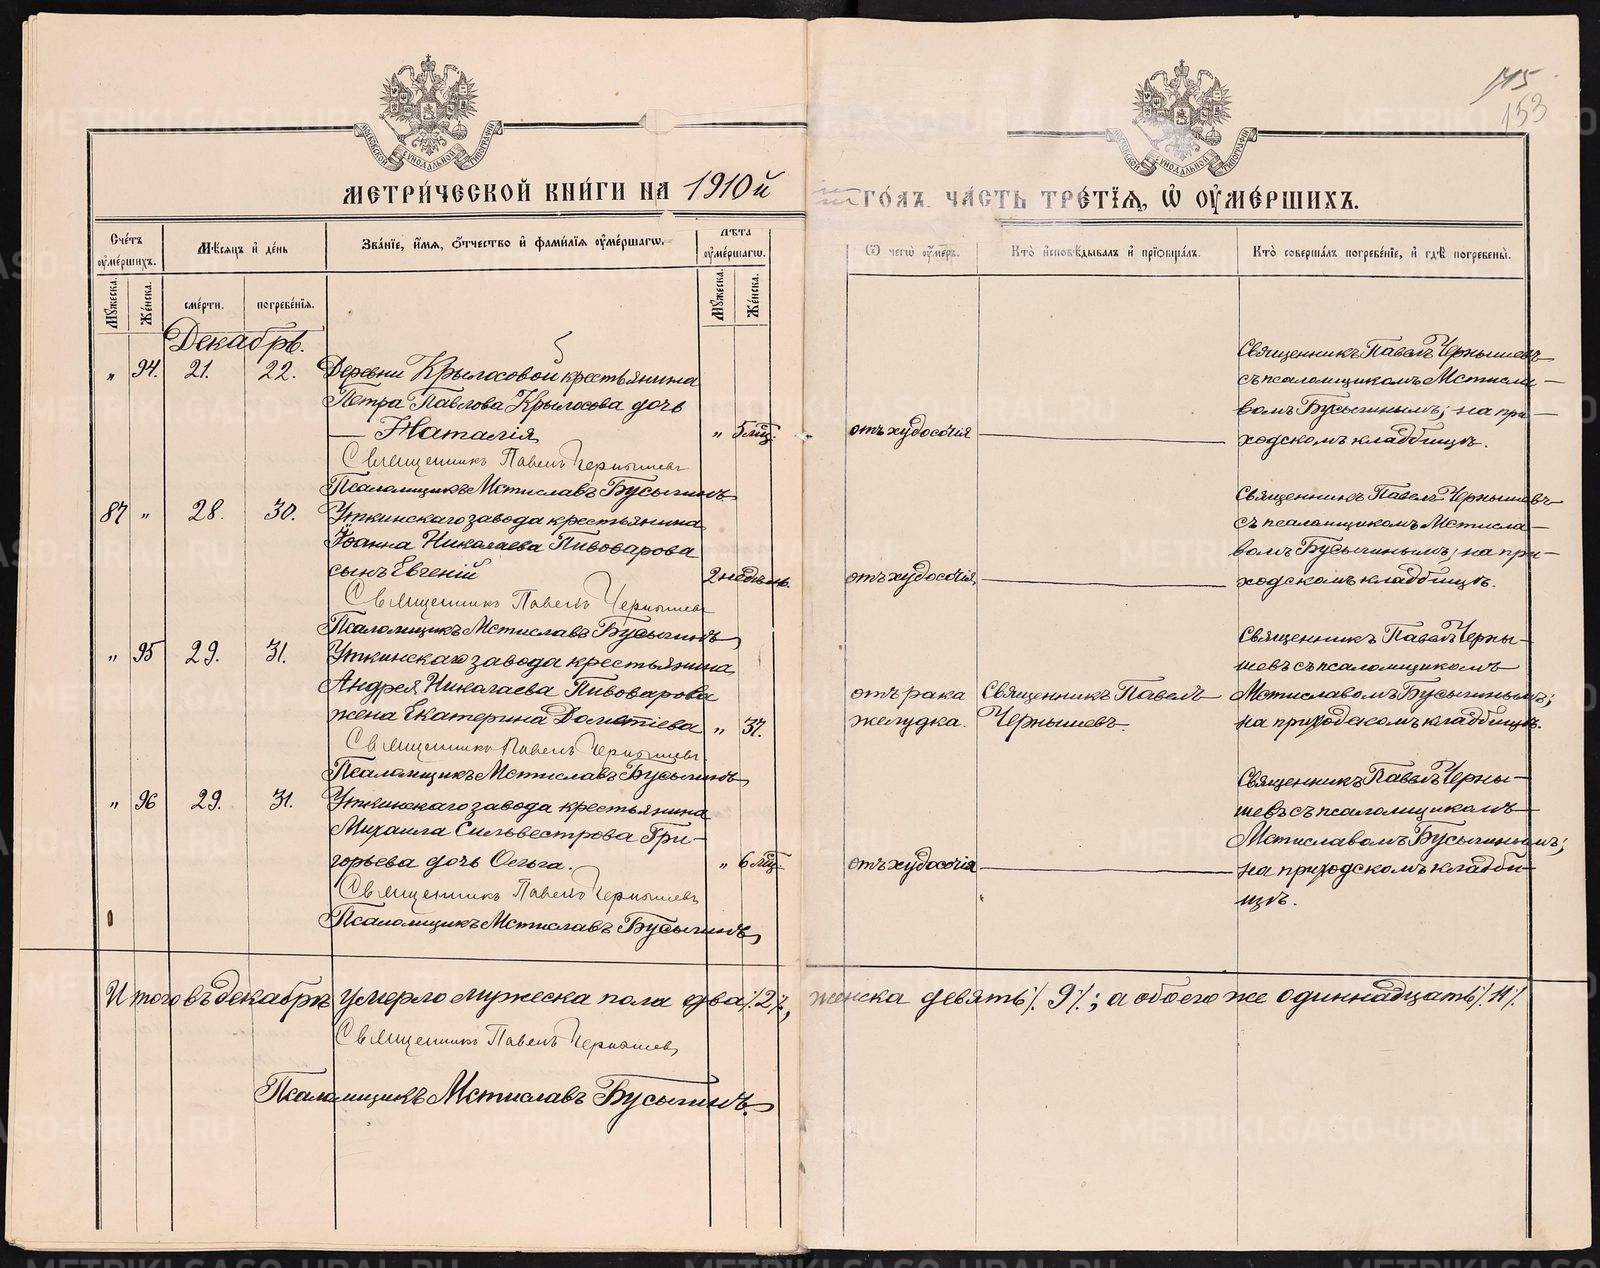 175
153
МОСКОВСКОЙ СѴНОДАЛЬНОЙ ТИПОГРАФІИ
МОСКОВСКОЙ СѴНОДАЛЬНОЙ ТИПОГРАФІИ
МЕТРИ́ЧЕСКОЙ КНИ́ГИ НА 1910й
ГО́ДЪ ЧА́СТЬ ТРЕ́ТІЯ, Ѡ҆ ОУ҆МЕ́РШИХЪ.
Сче́тъ оу҆ме́ршихъ.
Мѣ́сяцъ и҆ де́нь
Зва́нїе, и҆́мя, ѻ҆́тчество и҆ фамилїя оу҆ме́ршагѡ.
Лѣ́та оу҆ме́ршагѡ.
Ѿ чегѡ̀ оу҆́меръ.
Кто̀ и҆сповѣ́дывалъ и҆ прїѻбща́лъ.
Кто̀ соверша́лъ погребе́нїе, и҆ гдѣ̀ погребены̀.
Мꙋ́жеска.
Же́нска.
сме́рти.
погребе́нїя.
Мꙋ́жеска.
Же́нска.
Декабрь.
" 94. 21. 22. Деревни Крылосовой крестьянина
Петра Павлова Крылосова дочь
— Наталія " 5 мц.
Священникъ Павелъ Чернышевъ
Псаломщикъ Мстиславъ Бусыгинъ
отъ худосочія
Священникъ Павелъ Чернышевъ
съ псаломщикомъ Мстисла—
вомъ Бусыгинымъ; на при—
ходскомъ кладбищѣ.
87 " 28. 30. Уткинскаго завода крестьянина
Іоанна Николаева Пивоварова
сынъ Евгеній 2 недѣль.
Священникъ Павелъ Чернышевъ
Псаломщикъ Мстиславъ Бусыгинъ
отъ худосочія
Священникъ Павелъ Чернышевъ
съ псаломщикомъ Мстисла—
вомъ Бусыгинымъ; на при—
ходскомъ кладбищѣ.
" 95 29. 31. Уткинскаго завода крестьянина
Андрея Николаева Пивоварова
жена Екатерина Дометіева " 37.
Священникъ Павелъ Чернышевъ
Псаломщикъ Мстиславъ Бусыгинъ
отъ рака
желудка.
Священникъ Павелъ
Чернышевъ.
Священникъ Павелъ Черны—
шевъ съ псаломщикомъ
Мстиславомъ Бусыгинымъ;
на приходскомъ кладбищѣ.
" 96 29. 31. Уткинскаго завода крестьянина
Михаила Сильвестрова Гри—
горьева дочь Ольга. " 6 мц.
Священникъ Павелъ Чернышевъ
Псаломщикъ Мстиславъ Бусыгинъ
отъ худосочія
Священникъ Павелъ Черны—
шевъ съ псаломщикомъ
Мстиславомъ Бусыгинымъ;
на приходскомъ кладби—
щѣ.
Итого въ декабрѣ умерло мужеска пола два ⁒2⁒, женска девять ⁒9⁒; а обоего же одиннадцать ⁒11⁒
Священникъ Павелъ Чернышевъ
Псаломщикъ Мстиславъ Бусыгинъ.
METRIKI.GASO-URAL.RU